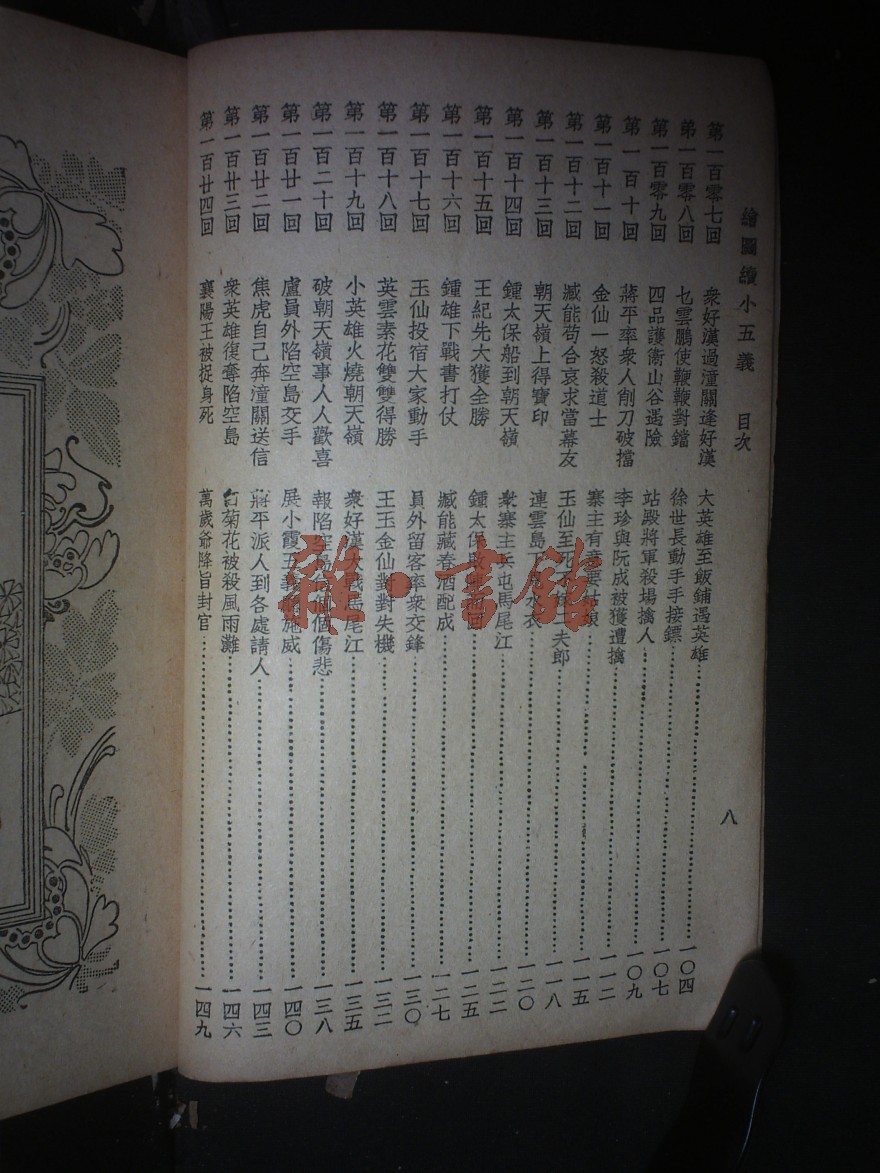 繪圖續小五義　目次　八
第一百零七回　衆好漢過潼關逢好漢　大英雄至飯鋪遇英雄　一〇四
第一百零八回　乜雲鵬使鞭鞭對鐺　徐世長動手手接鏢　一〇七
第一百零九回　四品護衞山谷遇險　站殿將軍殺場擒人　一〇九
第一百十回　蔣平率衆人削刀破擋　李珍與阮成被獲遭擒　一一二
第一百十一回　金仙一怒殺道士　寨主有意要姑娘　一一五
第一百十二回　臧能苟合哀求當幕友　玉仙至死夫郎　一一八
第一百十三回　朝天嶺上得寶印　連雲島下水衣　一二〇
第一百十四回　鍾太保船到朝天嶺　衆寨主兵屯馬尾江　一二二
第一百十五回　王紀先大獲全勝　鍾太保回　一二五
第一百十六回　鍾雄下戰書打仗　臧能藏春酒配成　一二七
第一百十七回　玉仙投宿大家動手　員外留客率衆交鋒　一三〇
第一百十八回　英雲素花雙雙得勝　王玉金仙對對失機　一三二
第一百十九回　小英雄火燒朝天嶺　衆好漢大戰馬尾江　一三五
第一百二十回　破朝天嶺事人人歡喜　報陷空島信個個傷悲　一三八
第一百廿一回　盧員外陷空島交手　展小霞五義廳施威　一四〇
第一百廿二回　焦虎自己奔潼關送信　蔣平派人到各處請人　一四三
第一百廿三回　衆英雄復奪陷空島　白菊花被殺風雨灘　一四六
第一百廿四回　襄陽王被捉身死　萬歲爺降旨封官　一四九
雜·書館